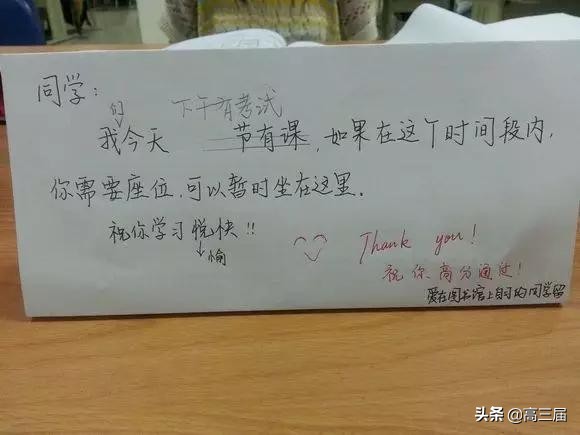 同学：
们 下午有考试
我今天 节有课，如果在这个时间段内，
你需要座位，可以暂时坐在这里。
祝你学习悦快!!
愉
Thank you!
祝你高分通过!
爱在图书馆上自习的同学留
头条 @高三届